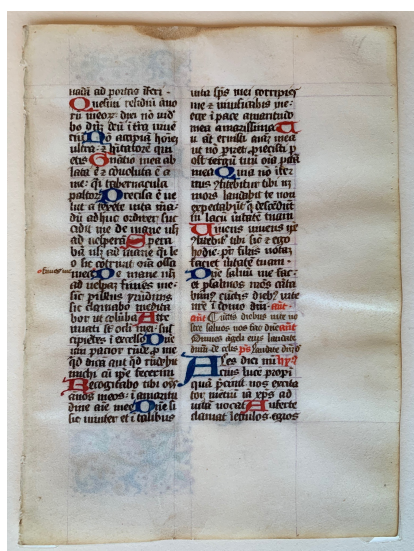 uadā ad portas iferi ·
Quesiui residuū ano
rū meoꝝ: dixi nō uid
bo dn̄ deū ī t̄ra uiuē
tiū No aspiciā hoiez
ultra: ⁊ hītatorē qui
etis Gnatio mea ab
lata ē ⁊ cōuoluta ē a
me: q̄ tabernacula
pastoꝝ Precisa ē ue
lut a texēte uita mea
dū adhuc ordirer suc
cidit me de mane usꝫ
ad uesperā Spera
bā usꝫ ad mane q̄ le
o sic cōtriuit oīa ossa
finies me
mea De mane usꝫ
ad uesperā finies me:
sic pullus yrūdinis
sic clamabo medita
bor ut colūba Atte
nuati st̄ ocli mei: sus
cipiētes ī excelsū Dne
uim patior rn̄de p me
qd dicā aut qd rn̄debit
michi cū ipe fecerim
Recogitabo tibi oēs
anos meos: ī amaritu
dine aīe mee Dne si
sic uiuiter et ī talibus
uita sp̄s mei corripies
me ⁊ uiuificabis me:
ecce ī pace amaritudo
mea amarissima Tu
aūt eruisti aīaz meā
ut nō piret: proiecisti p
ost tergū tuū oīa pctā
mea Quia nō īfer
nus ꝯfitebitur tibi nꝫ
mors laudabit te non
expectabūt q̄ descēdūt
in lacū uitatē tuam
Uiuens uiuens ip̄e
ꝯfitebitur tibi sic ⁊ ego
hodie: pr̄ filiis notaz
faciet uitatē tuam ·
Dne saluū me fac:
et psalmos nr̄os cāta
bim̄ꝰ cūctis diebꝫ uite
nr̄e ī domo dn̄i · ant̄
ant̄ Cūctis diebus uite no
stre saluos nos fac dn̄e ant̄
Omnes ageli eius laudate
dnm de celis ps Laudate dnm
Ales diei nū hyꝰ
tius lucē propi
quā p̄cinit nos excita
tor mētiū iā xp̄s ad
uitā uocat Auferte
clamat lectulos egros